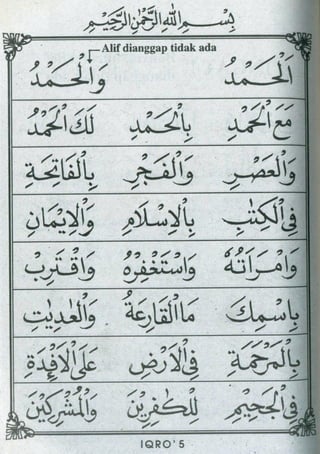 بِسْمِ اللهِ الرَّحْمٰنِ الرَّحِيْمِ
Alif dianggap tidak ada
اَلْحَمْدُ وَالْحَمْدُ
مَعَ الْحَمْدِ بِالْحَمْدِ لَكَ الْحَمْدُ
وَالْعَصْرِ وَالْفَجْرِ بِالْفَاتِحَةِ
فِى الْكِتٰبِ بِالْاِسْلَامِ وَالْاِيْمَانِ
وَامْرَاَتُهُ وَاسْتَغْفِرْهُ وَاقْتَرِبْ
بِاسْمِكَ مَاالْقَارِعَةُ وَالْعٰدِيٰتِ
بِالْمَرْحَمَةِ فِى الْاَرْضِ عَلَى الْاَفْـِٕدَةِ
فِى الْجَحِيْمِ لِلْكٰفِرِيْنَ وَالْمُشْرِكِيْنَ
IQRO' 5